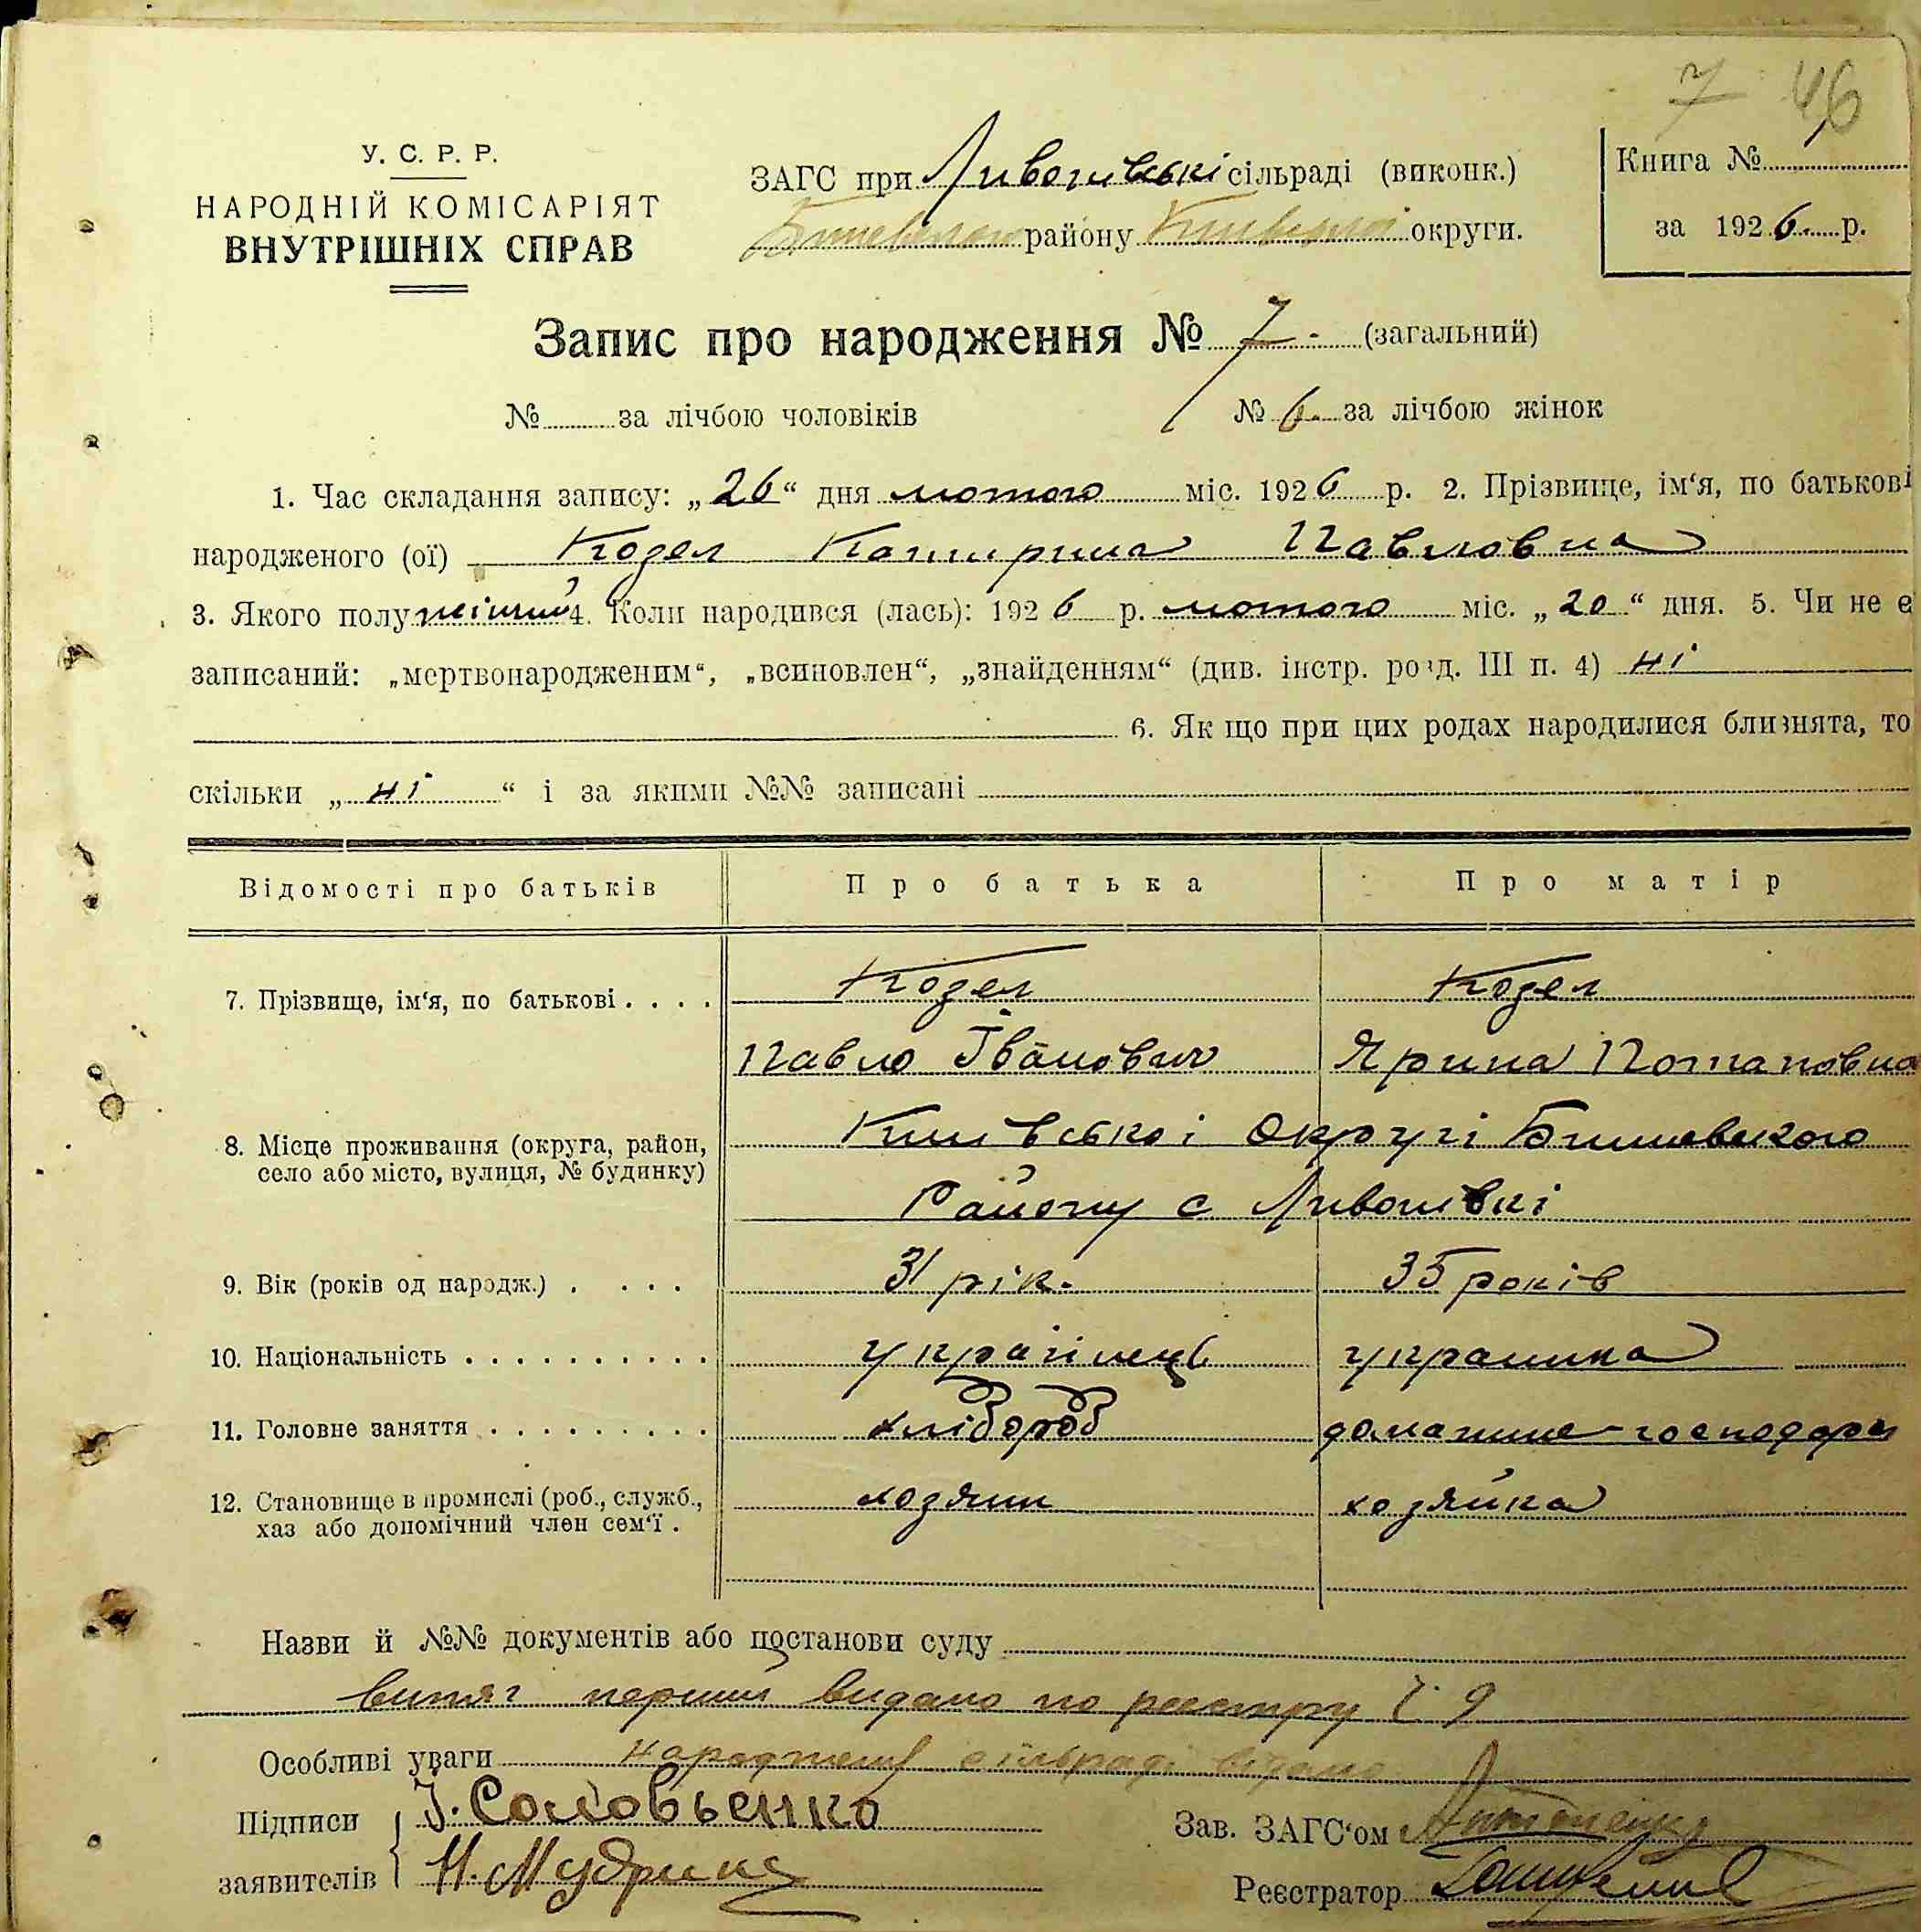 7 46
У. С. Р. Р.
НАРОДНІЙ КОМІСАРІЯТ
ВНУТРІШНІХ СПРАВ
ЗАГС при Ливонивські сільраді (виконк.)
району округи.
Книга №
за 1926 р.
Запис про народження № 7 (загальний)
№ за лічбою чоловіків № 6 за лічбою жінок
1. Час складання запису: „26“ дня лютого міс. 1926 р. 2. Прізвище, ім‘я, по батькові
народженого (ої) Козел Катирина Павловна
3. Якого полу жіночий 4. Коли народився (лась): 1926 р. лютого міс. „20“ дня. 5. Чи не є
записаний: „мертвонародженим“, „всиновлен“, „знайденням“ (див. інстр. розд. III п. 4) ні
6. Як що при цих родах народилися близнята, то
скільки „ні“ і за якими №№ записані
Відомості про батьків Про батька Про матір
7. Прізвище, ім‘я, по батькові . . . . Козел Козел
Павло Іванович Ярина Потаповна
8. Місце проживання (округа, район, Київської Округі Бишевського
село або місто, вулиця, № будинку)
Району с Ливонівкі
9. Вік (років од народж.) . . . . 31 рік. 35 років
10. Національність . . . . . . . . . . українець украинка
11. Головне заняття . . . . . . . . . хлібороб домашнє-господарк
12. Становище в промислі (роб., служб., хозяин хозяйка
хаз або допомічний член сем‘ї .
Назви й №№ документів або постанови суду
витяг перший видано по реестру Ч. 9
Особливі уваги
Підписи І. Соловьенко Зав. ЗАГС‘ом
заявителів Н. Мудрик Реєстратор